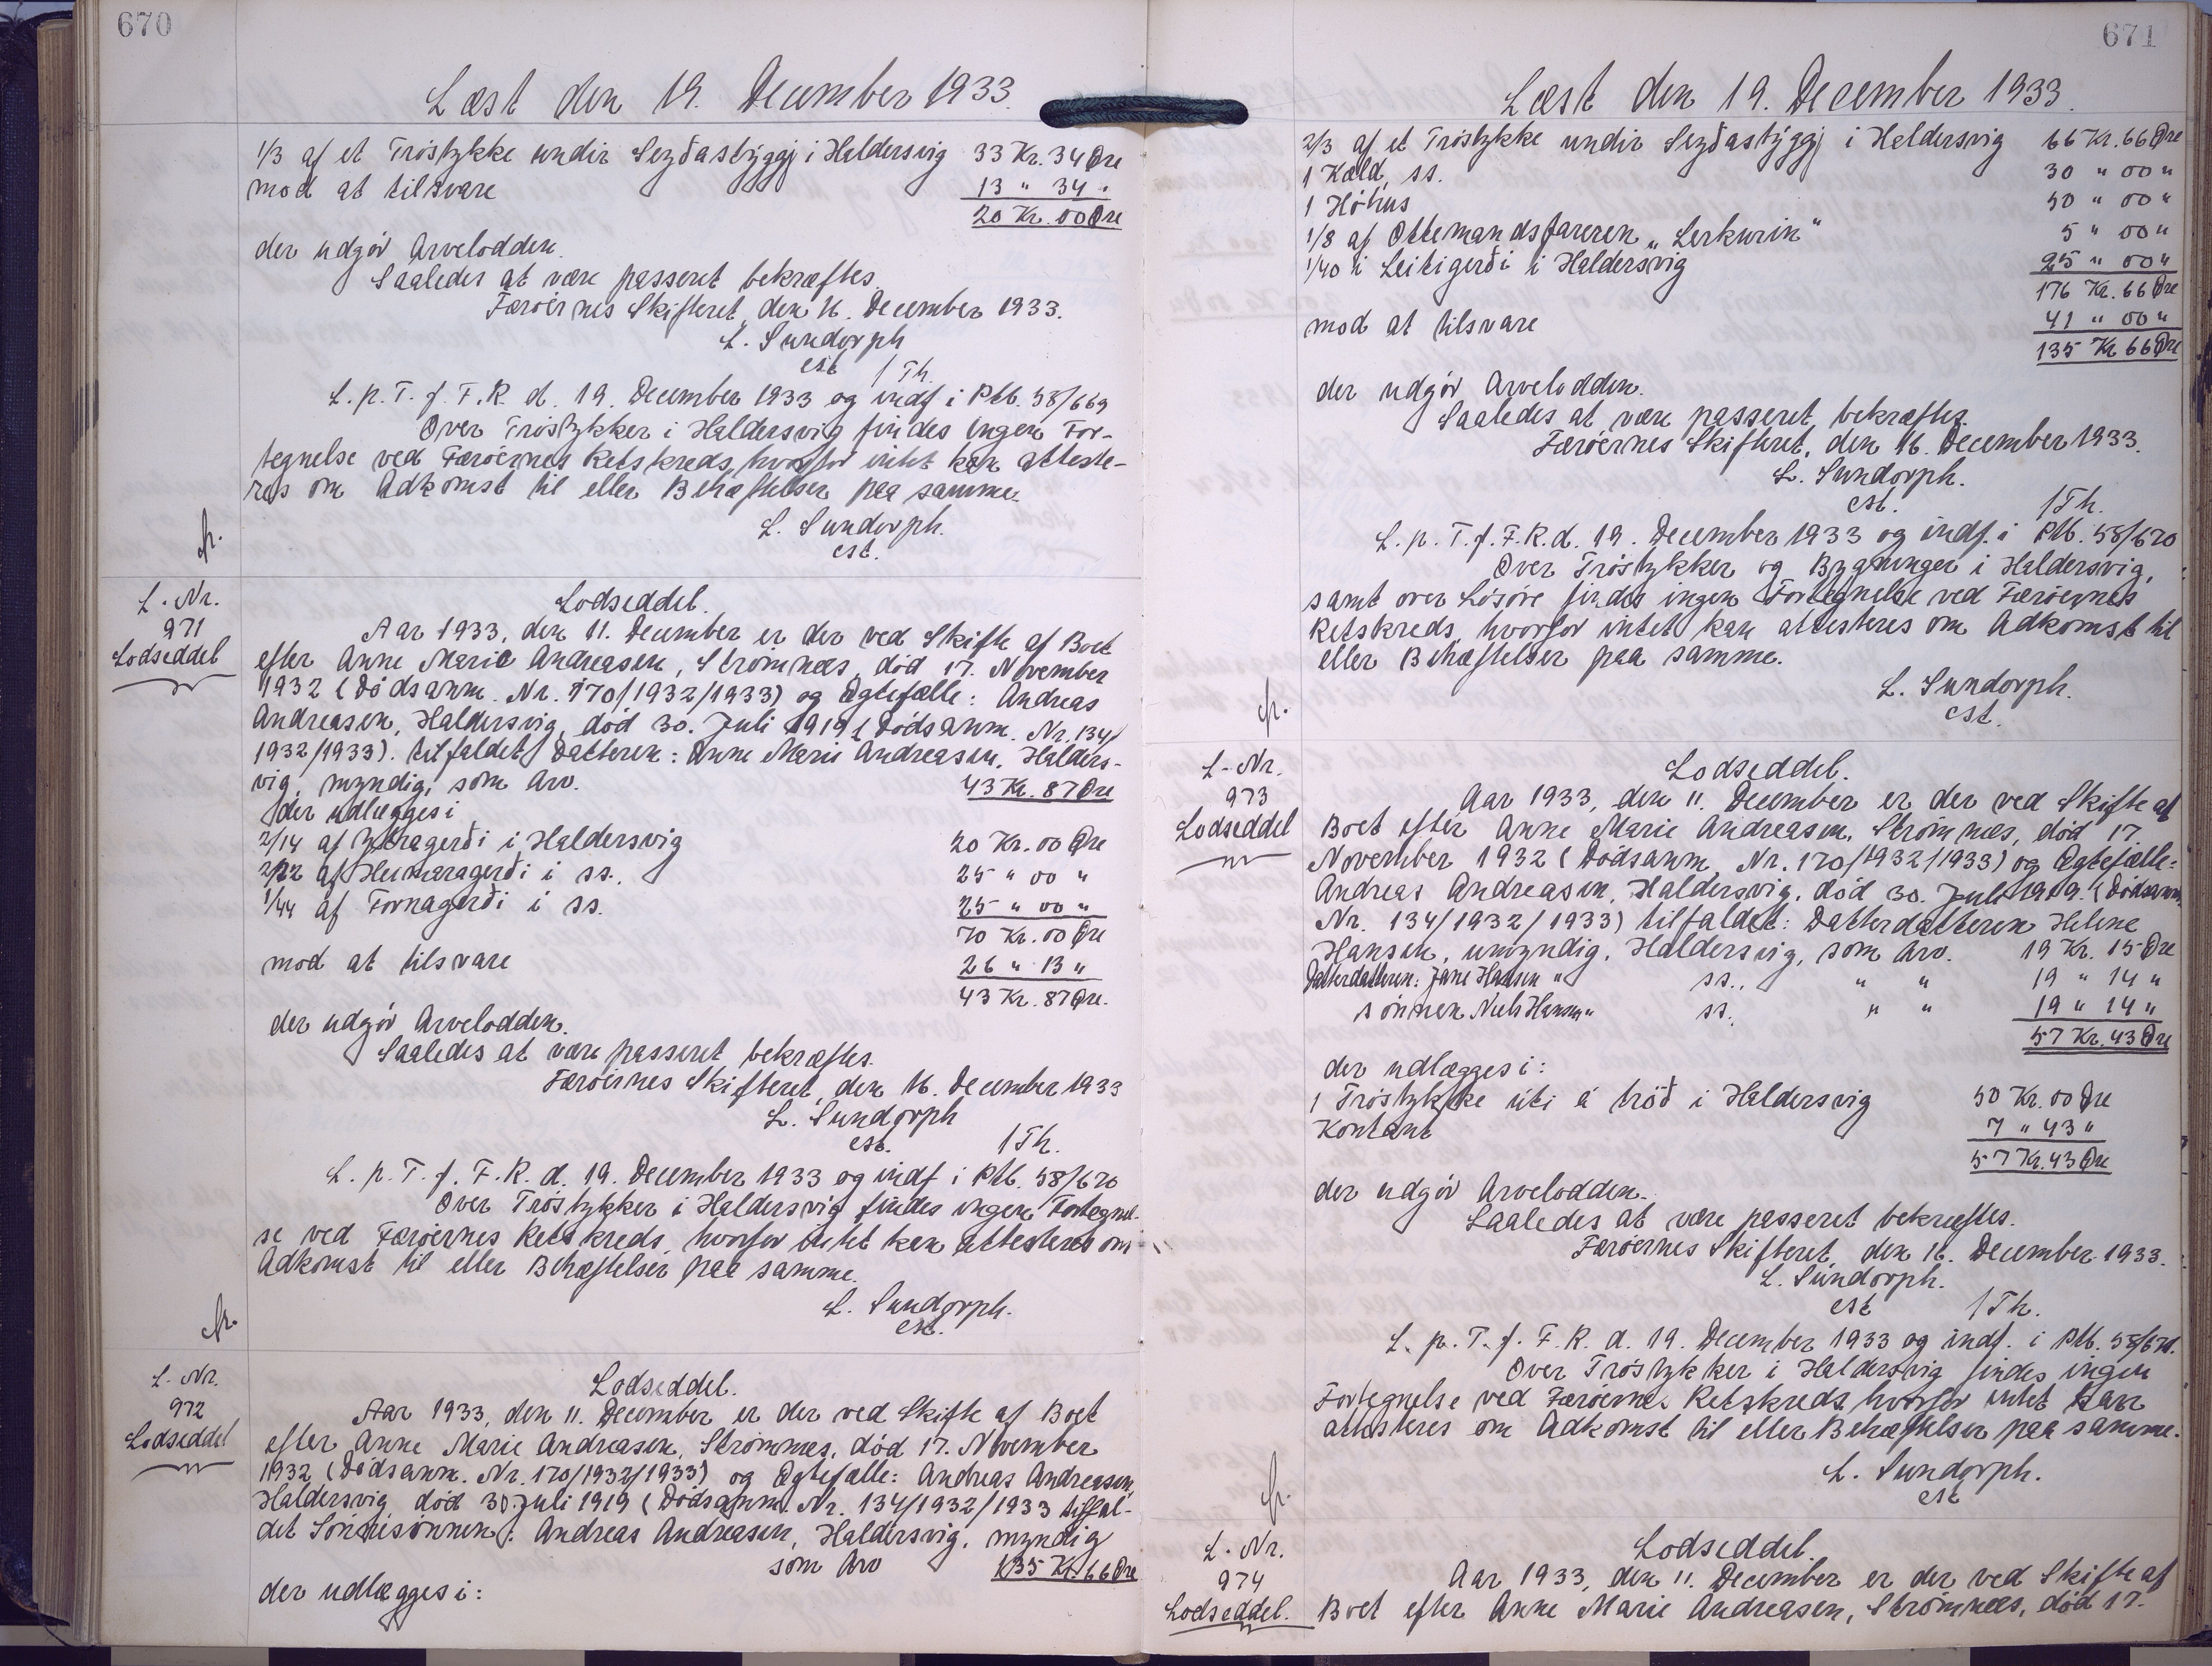 670
Læst den 19. December 1933.
1/3 af et Tróstykke undir Seyðastýggj i Haldersvig 33 Kr. 34 Øre
mod at tilsvare 13 " 34 "
20 Kr. 00 Øre
der udgør Arvelodden.
Saaledes at være passeret bekræftes.
Færøernes Skifteret, den 16. December 1933.
L. Sundorph
cst. / Th.
L. p. T. f. F. R. d. 19. December 1933 og indf. i Ptb. 58/669
Over Tróstykker i Haldersvig findes ingen For-
tegnelse ved Færøernes Retskreds, hvorfor intet kan atteste-
res om Adkomst til eller Behæftelser paa samme.
L. Sundorph.
cst.
fr.
L. Nr.
971
Lodseddel
Lodseddel.
Aar 1933, den 11. December er der ved Skifte af Boet
efter Anne Marie Andreasen, Strømnæs, død 17. November
1932 (Dødsanm. Nr. 170/1932/1933) og Ægtefælle: Andreas
Andreasen, Haldersvig, død 30. Juli 1919 (Dødsanm. Nr. 134/
1932/1933). tilfaldet Datteren: Anne Marie Andreasen, Halders-
vig, myndig, som Arv. 43 Kr. 87 Øre
der udlægges i
2/14 af Ytragerði i Haldersvig 20 Kr. 00 Øre
2/22 af Heimaragerði i ss. 25 " 00 "
1/44 af Fornagerði i ss. 25 " 00 "
70 Kr. 00 Øre
mod at tilsvare 26 " 13 "
43 Kr. 87 Øre.
der udgør Arvelodden.
Saaledes at være passeret bekræftes.
Færøernes Skifteret, den 16. December 1933
L. Sundorph
cst. / Th.
L. p. T. f. F. R. d. 19. December 1933 og indf. i Ptb. 58/670
Over Tróstykker i Haldersvig findes ingen Fortegnel-
se ved Færøernes Retskreds, hvorfor intet kan attesteres om
Adkomst til eller Behæftelser paa samme.
L. Sundorph.
cst.
fr.
L. Nr.
972
Lodseddel
Lodseddel.
Aar 1933, den 11. December er der ved Skifte af Boet
efter Anne Marie Andreasen, Strømnæs, død 17. November
1932 (Dødsanm. Nr. 170/1932/1933) og Ægtefælle: Andreas Andreasen,
Haldersvig død 30. Juli 1919 (Dødsanm. Nr. 134/1932/1933 tilfal-
det Sønnesønnen: Andreas Andreasen, Haldersvig, myndig
som Arv 135 Kr. 66 Øre
der udlægges i:
671
Læst den 19. December 1933.
2/3 af et Tróstykke undir Seyðastýggj i Haldersvig 66 Kr. 66 Øre
1 Kald, ss. 30 " 00 "
1 Hóhus 50 " 00 "
1/8 af Ottemandsfareren "Lerkurin" 5 " 00 "
1/40 i Leitigerði i Haldersvig 25 " 00 "
176 Kr. 66 Øre
mod at tilsvare 41 " 00 "
135 Kr 66 Øre
der udgør Arvelodden.
Saaledes at være passeret bekræftes.
Færøernes Skifteret, den 16. December 1933.
L. Sundorph.
cst. / Th.
L. p. T. f. F. R. d. 19. December 1933 og indf. i Ptb. 58/670
Over Tróstykker og Bygninger i Haldersvig,
samt over Løsøre findes ingen Fortegnelse ved Færøernes
Retskreds, hvorfor intet kan attesteres om Adkomst til
eller Behæftelser paa samme.
L. Sundorph.
cst.
fr.
L. Nr.
973
Lodseddel
Lodseddel.
Aar 1933, den 11. December er der ved Skifte af
Boet efter Anne Marie Andreasen, Strømnæs, død 17.
November 1932 (Dødsanm. Nr. 170/1932/1933) og Ægtefælle:
Andreas Andreasen, Haldersvig, død 30. Juli 1919. (Dødsanm.
Nr. 134/1932/1933) tilfaldet: Datterdatteren Helene
Hansen, umyndig, Haldersvig, som Arv. 19 Kr. 15 Øre
Datterdatteren: Jane Hansen " ss., " " 19 " 14 "
sønnen Niels Hansen " ss. " " 19 " 14 "
57 Kr. 43 Øre
der udlægges i:
1 Tróstykke úti á tröð i Haldersvig 50 Kr. 00 Øre
Kontant 7 " 43 "
57 Kr. 43 Øre
der udgør Arvelodden.
Saaledes at være passeret bekræftes.
Færøernes Skifteret, den 16. December 1933.
L. Sundorph.
cst / Th.
L. p. T. f. F. R. d. 19. December 1933 og indf. i Ptb. 58/671.
Over Tróstykker i Haldersvig findes ingen
Fortegnelse ved Færøernes Retskreds, hvorfor intet kan
attesteres om Adkomst til eller Behæftelser paa samme.
L. Sundorph.
cst
fr.
L. Nr.
974
Lodseddel.
Lodseddel.
Aar 1933, den 11. December er der ved Skifte af
Boet efter Anne Marie Andreasen, Strømnæs, død 17.